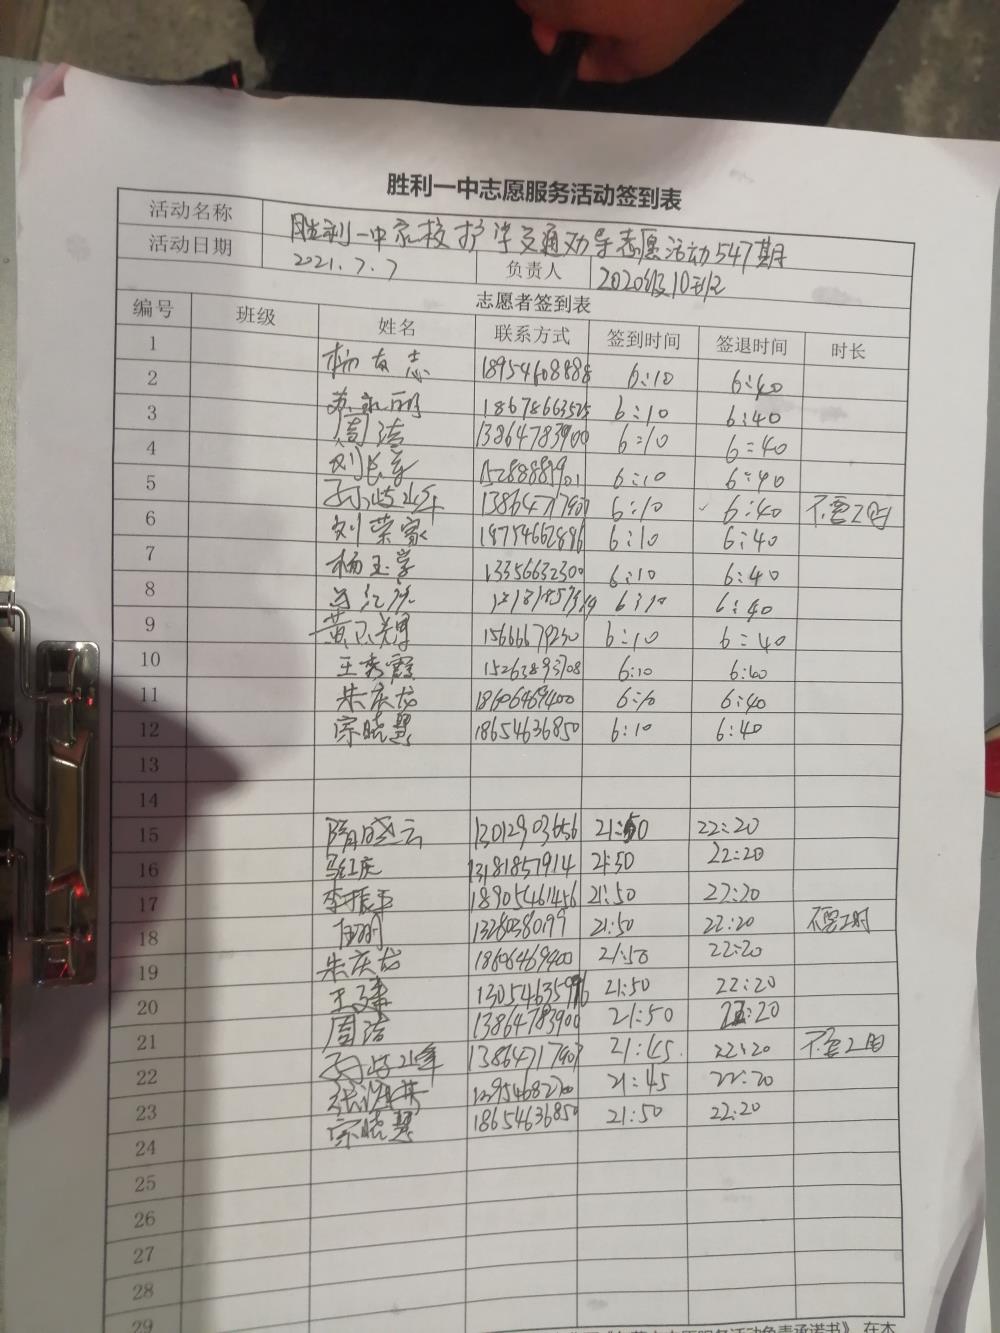 胜利一中志愿服务活动签到表
活动名称 胜利一中家校护学交通劝导志愿活动547期
活动日期 2021.7.7 负责人 2020级10班
志愿者签到表
编号 班级 姓名 联系方式 签到时间 签退时间 时长
1 杨友志 18954608888 6:10 6:40
2 苏永丽 18678663525 6:10 6:40
3 周洁 13864783900 6:10 6:40
4 刘长军 6:10 6:40
5 孙岐峰 13864717907 6:10 6:40 不要工时
6 刘荣家 18754662896 6:10 6:40
7 杨玉学 13356632300 6:10 6:40
8 6:10 6:40
9 15666679230 6:10 6:40
10 王秀霞 15263893708 6:10 6:40
11 朱庆龙 18606469400 6:10 6:40
12 宗晓慧 18654636850 6:10 6:40
13
14
15 隋晓云 13012903656 21:50 22:20
16 马红庆 13181857914 21:50 22:20
17 李振玉 18905461456 21:50 22:20
18 13280380199 21:50 22:20 不要工时
19 朱庆龙 18606469400 21:50 22:20
20 王建 13054635996 21:50 22:20
21 周洁 13864783900 21:50 22:20
22 孙岐峰 13864717907 21:45 22:20 不要工时
23 21:45 22:20
24 宗晓慧 18654636850 21:50 22:20
25
26
27
28
29
志愿服务活动免责承诺书》,在本